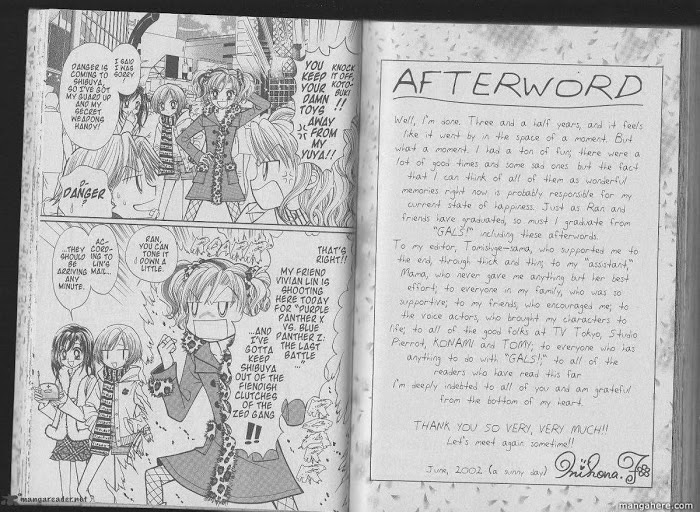 KNOCK
IT OFF,
KOTO-
BUKI!!
YOU
KEEP
YOUR
DAMN
TOYS
AWAY
FROM
MY
YUYA!!
I SAID
I WAS
SORRY.
DANGER IS
COMING TO
SHIBUYA,
SO I'VE GOT
MY GUARD UP
AND MY
SECRET
WEAPONS
HANDY!
D-
DANGER?
THAT'S
RIGHT!!
MY FRIEND
VIVIAN LIN IS
SHOOTING
HERE TODAY
FOR "PURPLE
PANTHER X
VS. BLUE
PANTHER Z:
THE LAST
BATTLE
..."
...AND
I'VE
GOTTA
KEEP
SHIBUYA
OUT OF THE
FIENDISH
CLUTCHES
OF THE
ZED GANG
!!
RAN,
YOU CAN
TONE IT
DOWN A
LITTLE.
AC-
CORD-
ING TO
LIN'S
MAIL...
...THEY
SHOULD
BE
ARRIVING
ANY
MINUTE.
mangareader.net
AFTERWORD
Well, I'm done. Three and a half years, and it feels
like it went by in the space of a moment. But
what a moment. I had a ton of fun; there were a
lot of good times and some sad ones but the fact
that I can think of all of them as wonderful
memories right now is probably responsible for my
current state of happiness. Just as Ran and
friends have graduated, so must I graduate from
"GALS!" including these afterwords.
To my editor, Tomishige-sama, who supported me to
the end, through thick and thin; to my "assistant,"
Mama, who never gave me anything but her best
effort; to everyone in my family, who was so
supportive; to my friends, who encouraged me; to
the voice actors, who brought my characters to
life; to all of the good folks at TV Tokyo, Studio
Pierrot, KONAMI and TOMY; to everyone who has
anything to do with "GALS!;" to all of the
readers who have read this far
I'm deeply indebted to all of you and am grateful
from the bottom of my heart.
THANK YOU SO VERY, VERY MUCH!!
Let's meet again sometime!!
June, 2002 (a sunny day) Mihona.F
mangahere.com